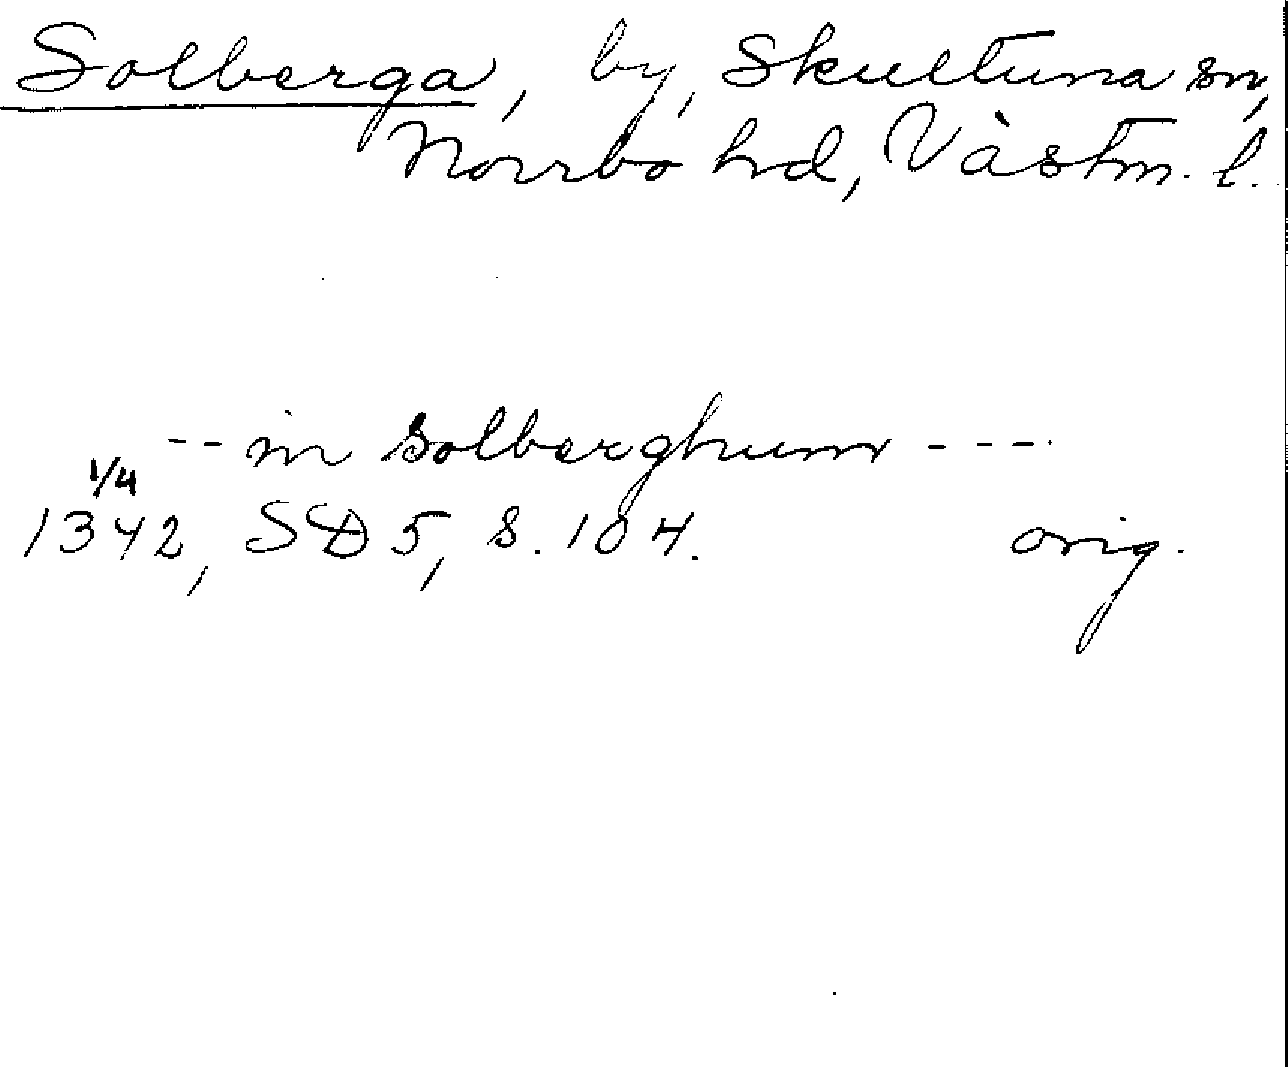 Solberga, by, Skultuna sn,
Norrbo hd, Västm. l.
-- in Solberghum ---
1/4
1342, SD 5, s. 104. orig.